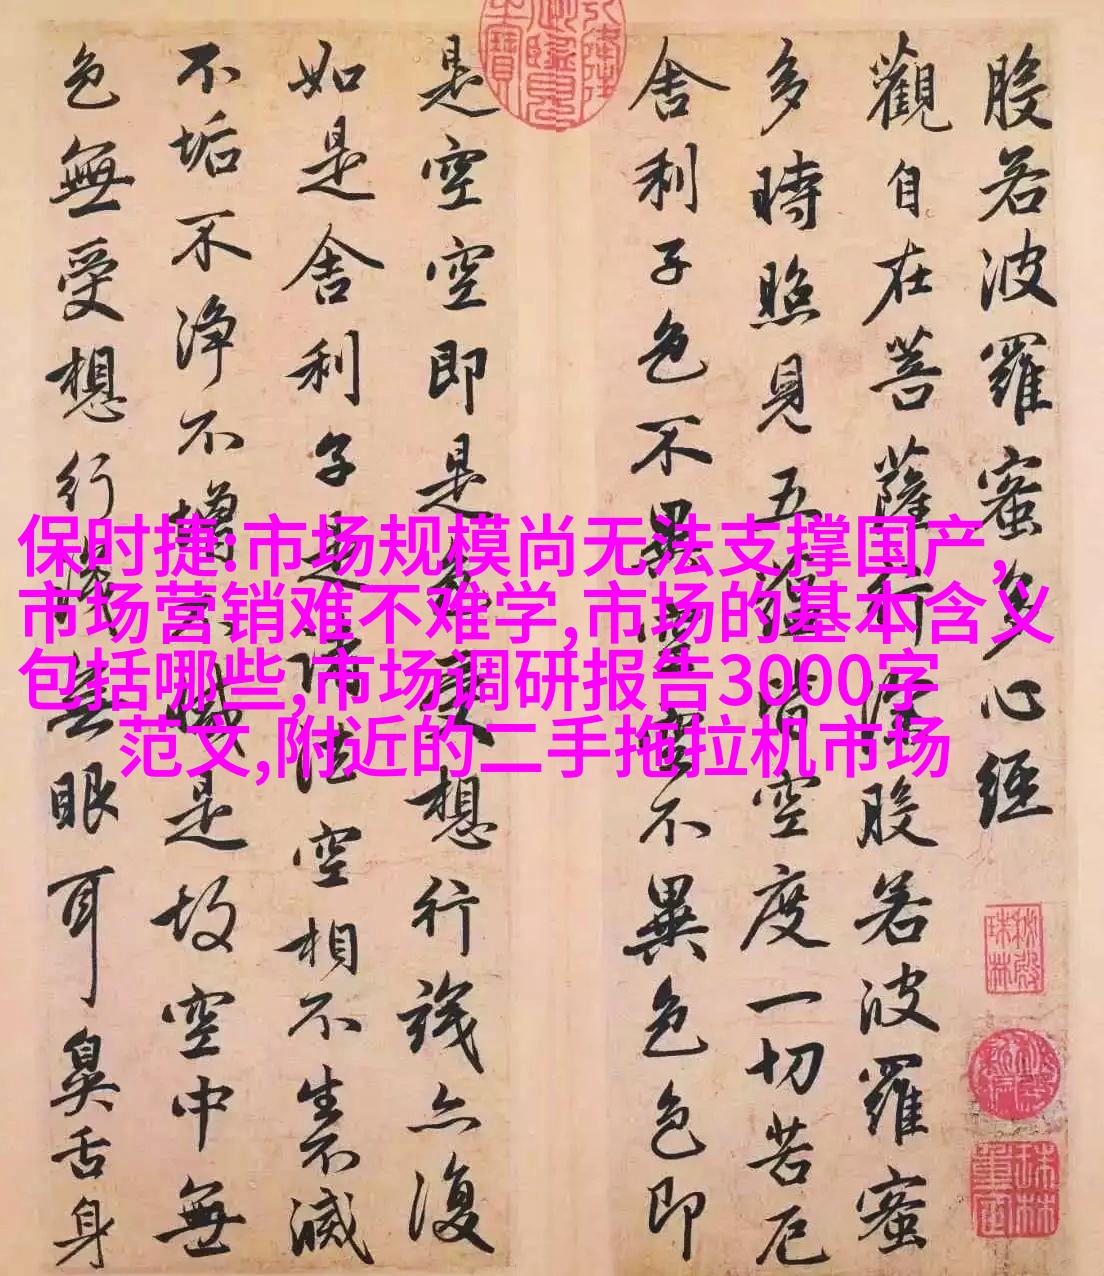 般若波羅蜜多心經
觀自在菩薩行深般若波羅蜜
多時照見五蘊皆空度一切苦厄
舍利子色不異空空不異色色即
是空空即是色受想行識亦復
如是舍利子是諸法空相不生不滅
不垢不净不增不減是故空中無
色無受想行識無眼耳鼻舌身
保时捷:市场规模尚无法支撑国产,
市场营销难不难学,市场的基本含义
包括哪些,市场调研报告3000字
范文,附近的二手拖拉机市场